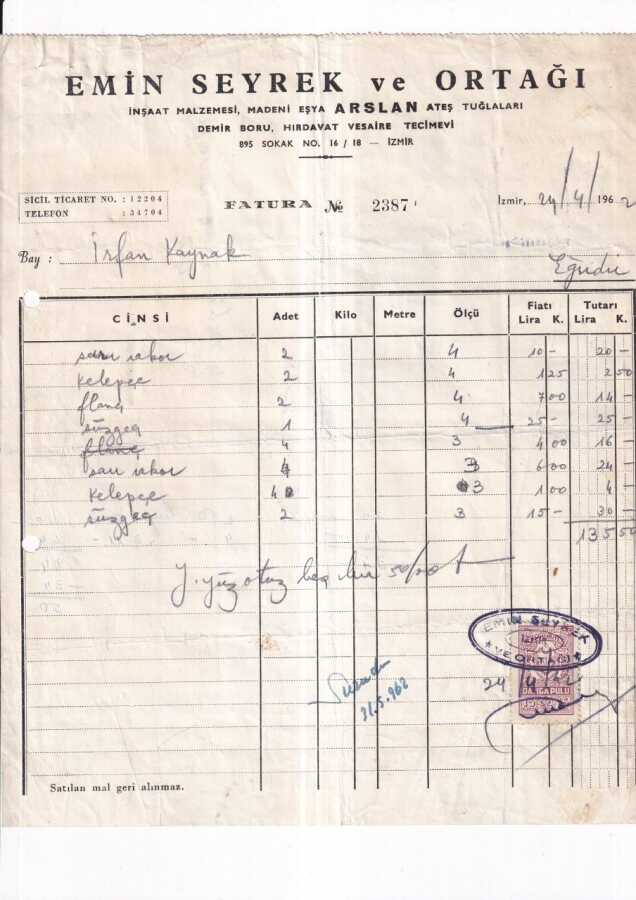 EMİN SEYREK ve ORTAĞI
İNŞAAT MALZEMESİ, MADENİ EŞYA ARSLAN ATEŞ TUĞLALARI
DEMİR BORU, HIRDAVAT VESAİRE TECİMEVİ
895 SOKAK NO. 16 / 18 — İZMİR
SİCİL TİCARET NO. : 12204
TELEFON : 34704
FATURA № 2387
İzmir, 24/4/1962
Bay : İrfan Kaynak
Eğridir
CİNSİ Adet Kilo Metre Ölçü Fiatı Lira K. Tutarı Lira K.
sarı rakor 2 4 10 - 20 -
kelepçe 2 4 1 25 2 50
flanç 2 4 7 00 14 -
süzgeç 1 4 25 - 25 -
flanç 4 3 4 00 16 -
sarı rakor 4 3 6 00 24 -
kelepçe 4 3 1 00 4 -
süzgeç 2 3 15 - 30 -
135 50
Y. yüz otuz beş lira 50/00
EMİN SEYREK
İZMİR
VE ORTAĞI
DAMGA PULU
24/4/62
31.5.962
Satılan mal geri alınmaz.